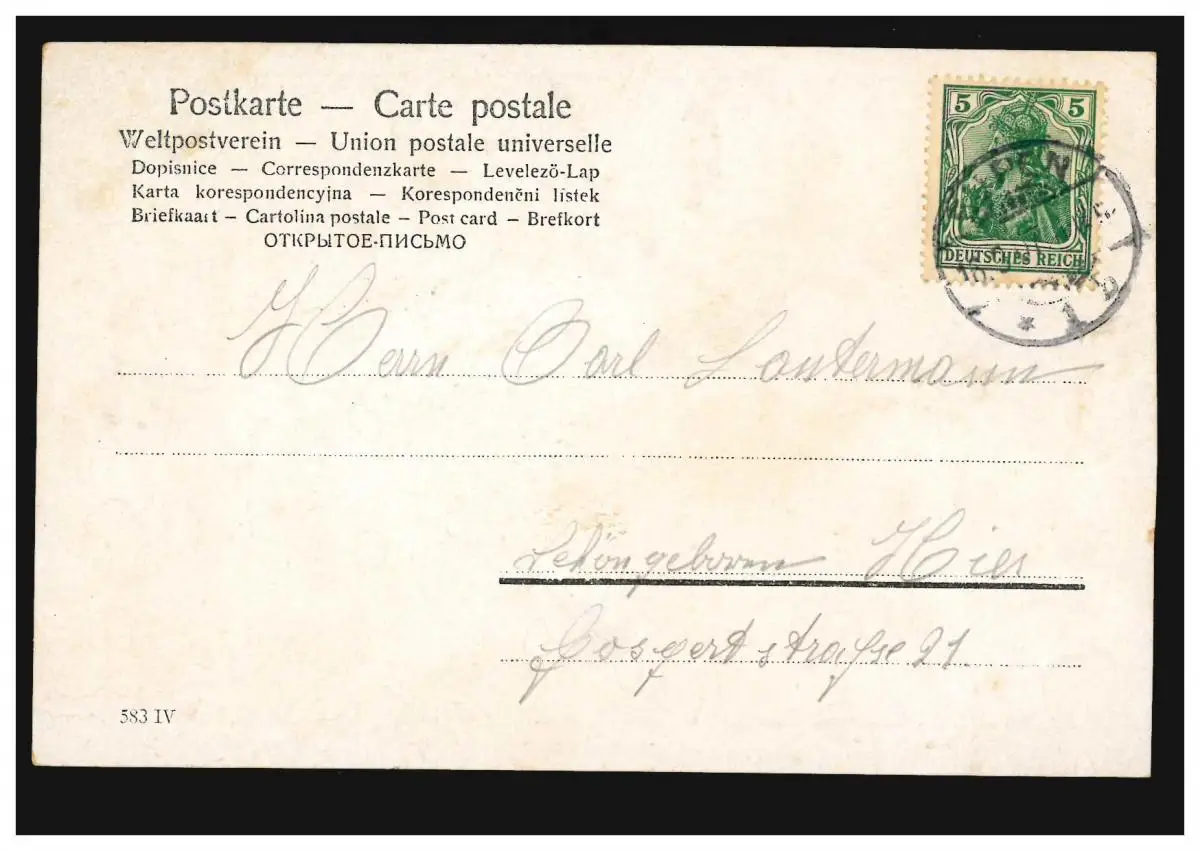 Postkarte — Carte postale
Weltpostverein — Union postale universelle
Dopisnice — Correspondenzkarte — Levelező-Lap
Karta korespondencyjna — Korespondenčni listek
Briefkaart – Cartolina postale – Post card – Brefkort
ОТКРЫТОЕ-ПИСЬМО
5 5
DEUTSCHES REICH
* 1
Herrn Carl Lautermann
Hier
583 IV